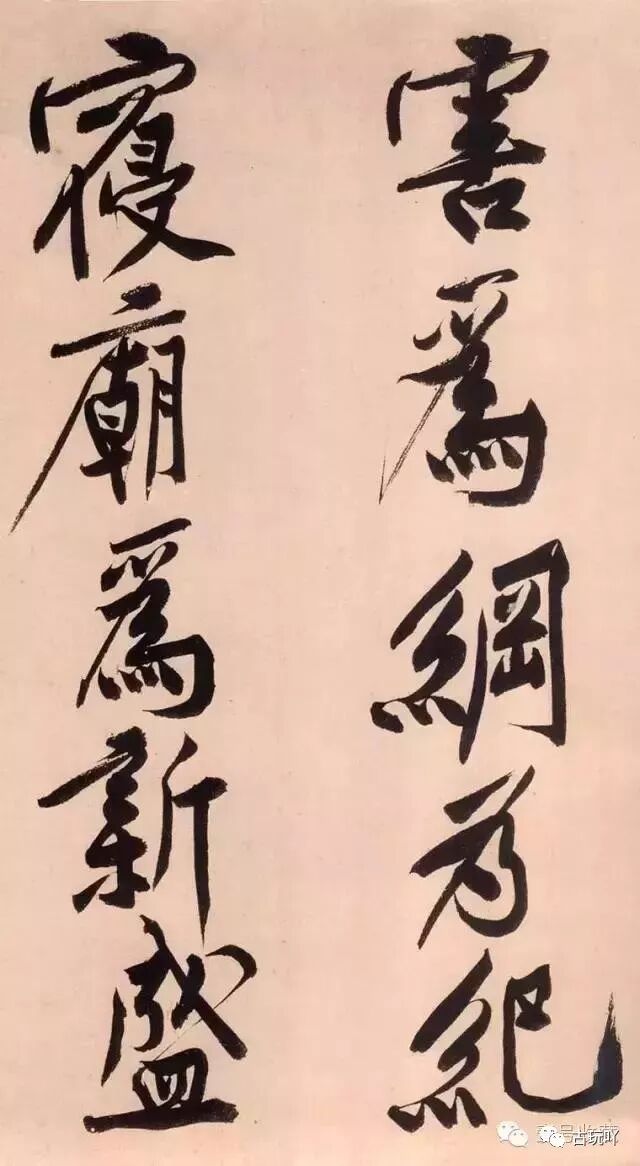 害爲綱為紀
寢廟爲新盛
古玩吖